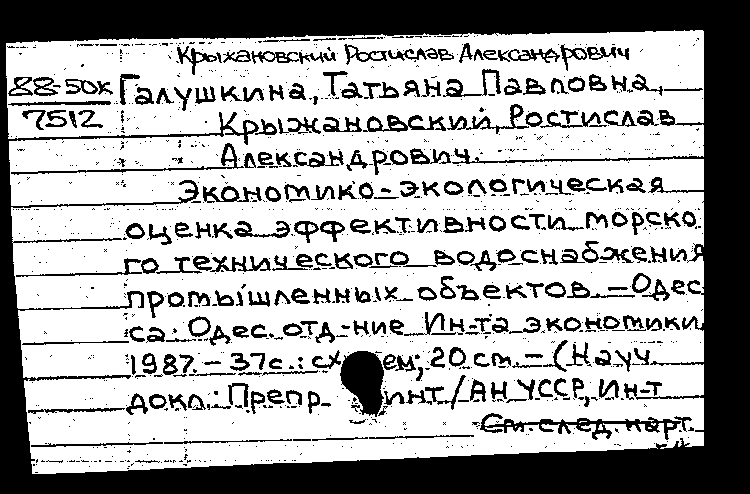 Крыжановский Ростислав Александрович
88-50к Галушкина, Татьяна Павловна,
7512 Крыжановский, Ростислав
Александрович.
Экономико-экологическая
оценка эффективности морско
го технического водоснабжения
промышленных объектов. — Одес
са: Одес. отд-ние Ин-та экономики,
1987. — 37с.: сх ем; 20 см. — (Науч.
докл.: Препр инт / АН УССР, Ин-т
См. след. карт.